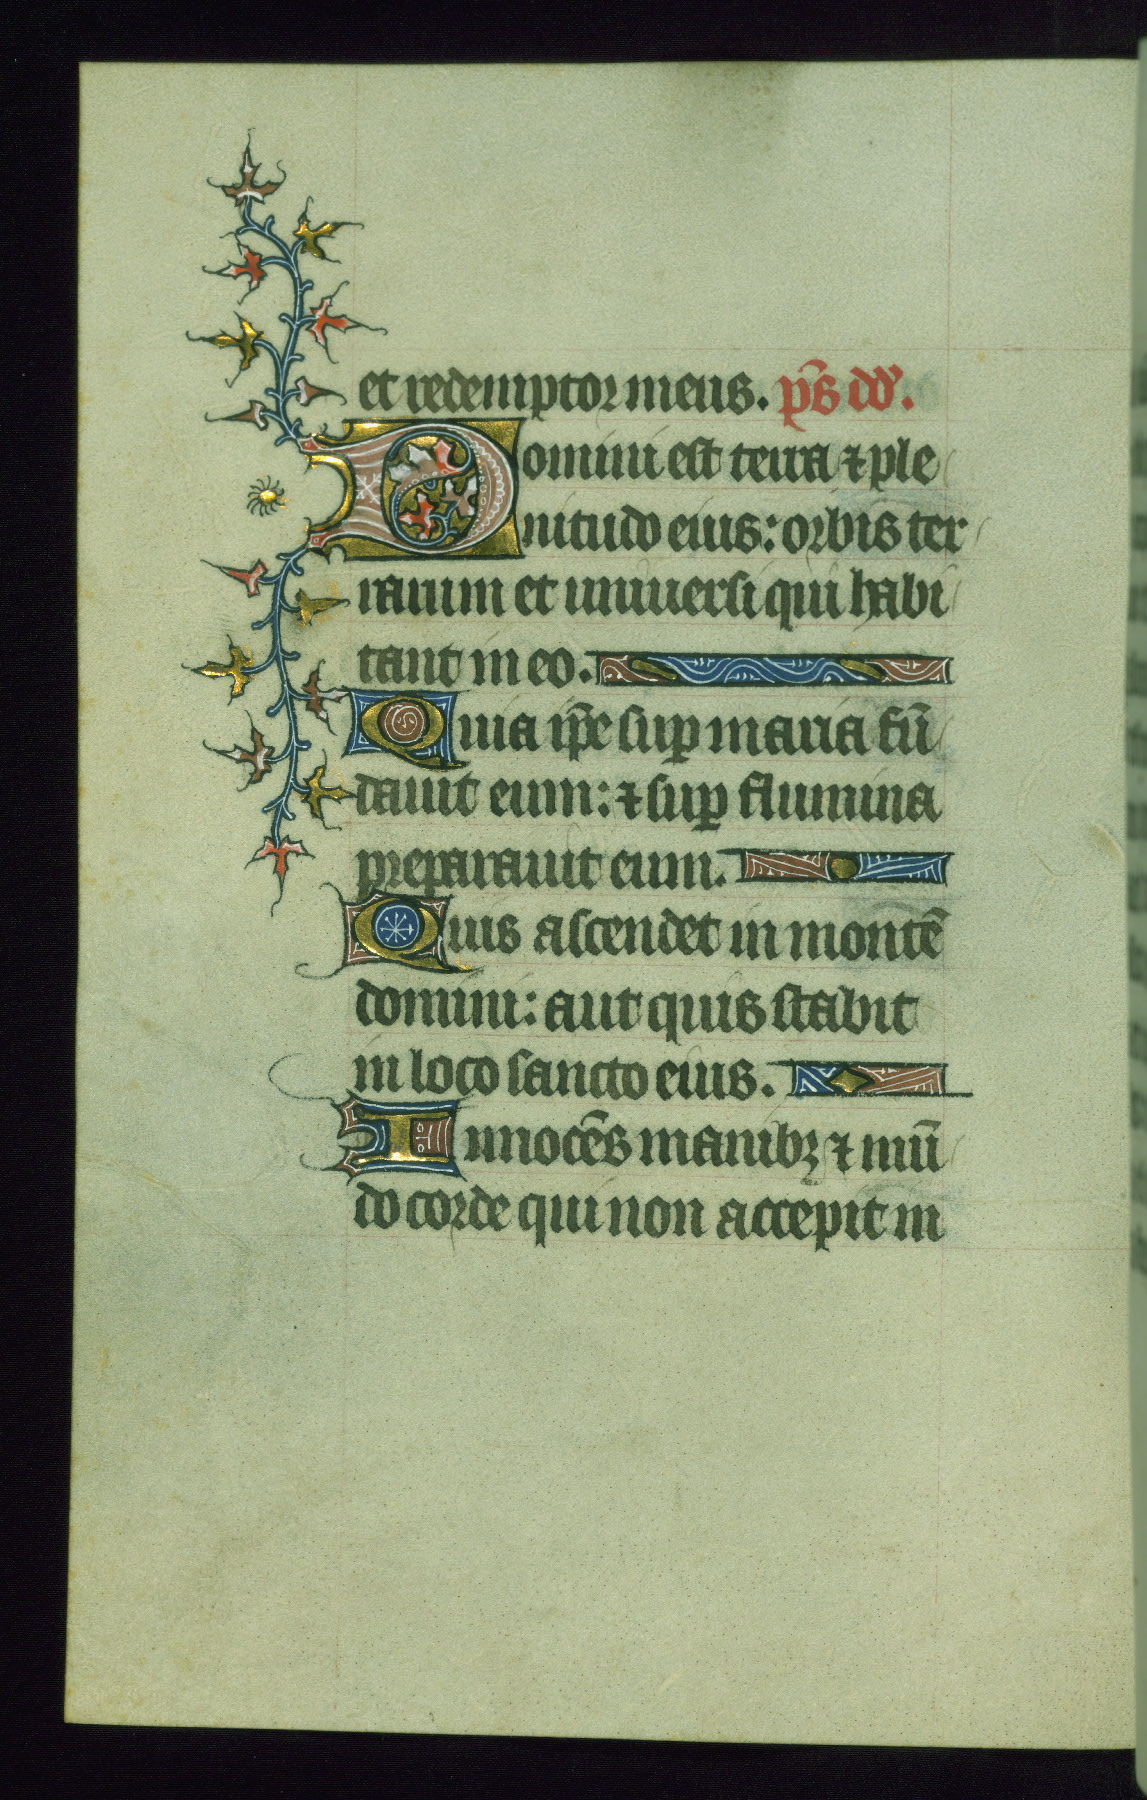 et redemptor meus. p̄s dd̄.
Domini est terra ⁊ ple
nitudo eius: orbis ter
rarum et uniuersi qui habi
tant in eo.
Quia ip̄e suꝑ maria fū
dauit eum: ⁊ suꝑ flumina
preparauit eum.
Quis ascendet in montē
domini: aut quis stabit
in loco sancto eius.
Innocēs manibꝫ ⁊ mū
do corde qui non accepit in